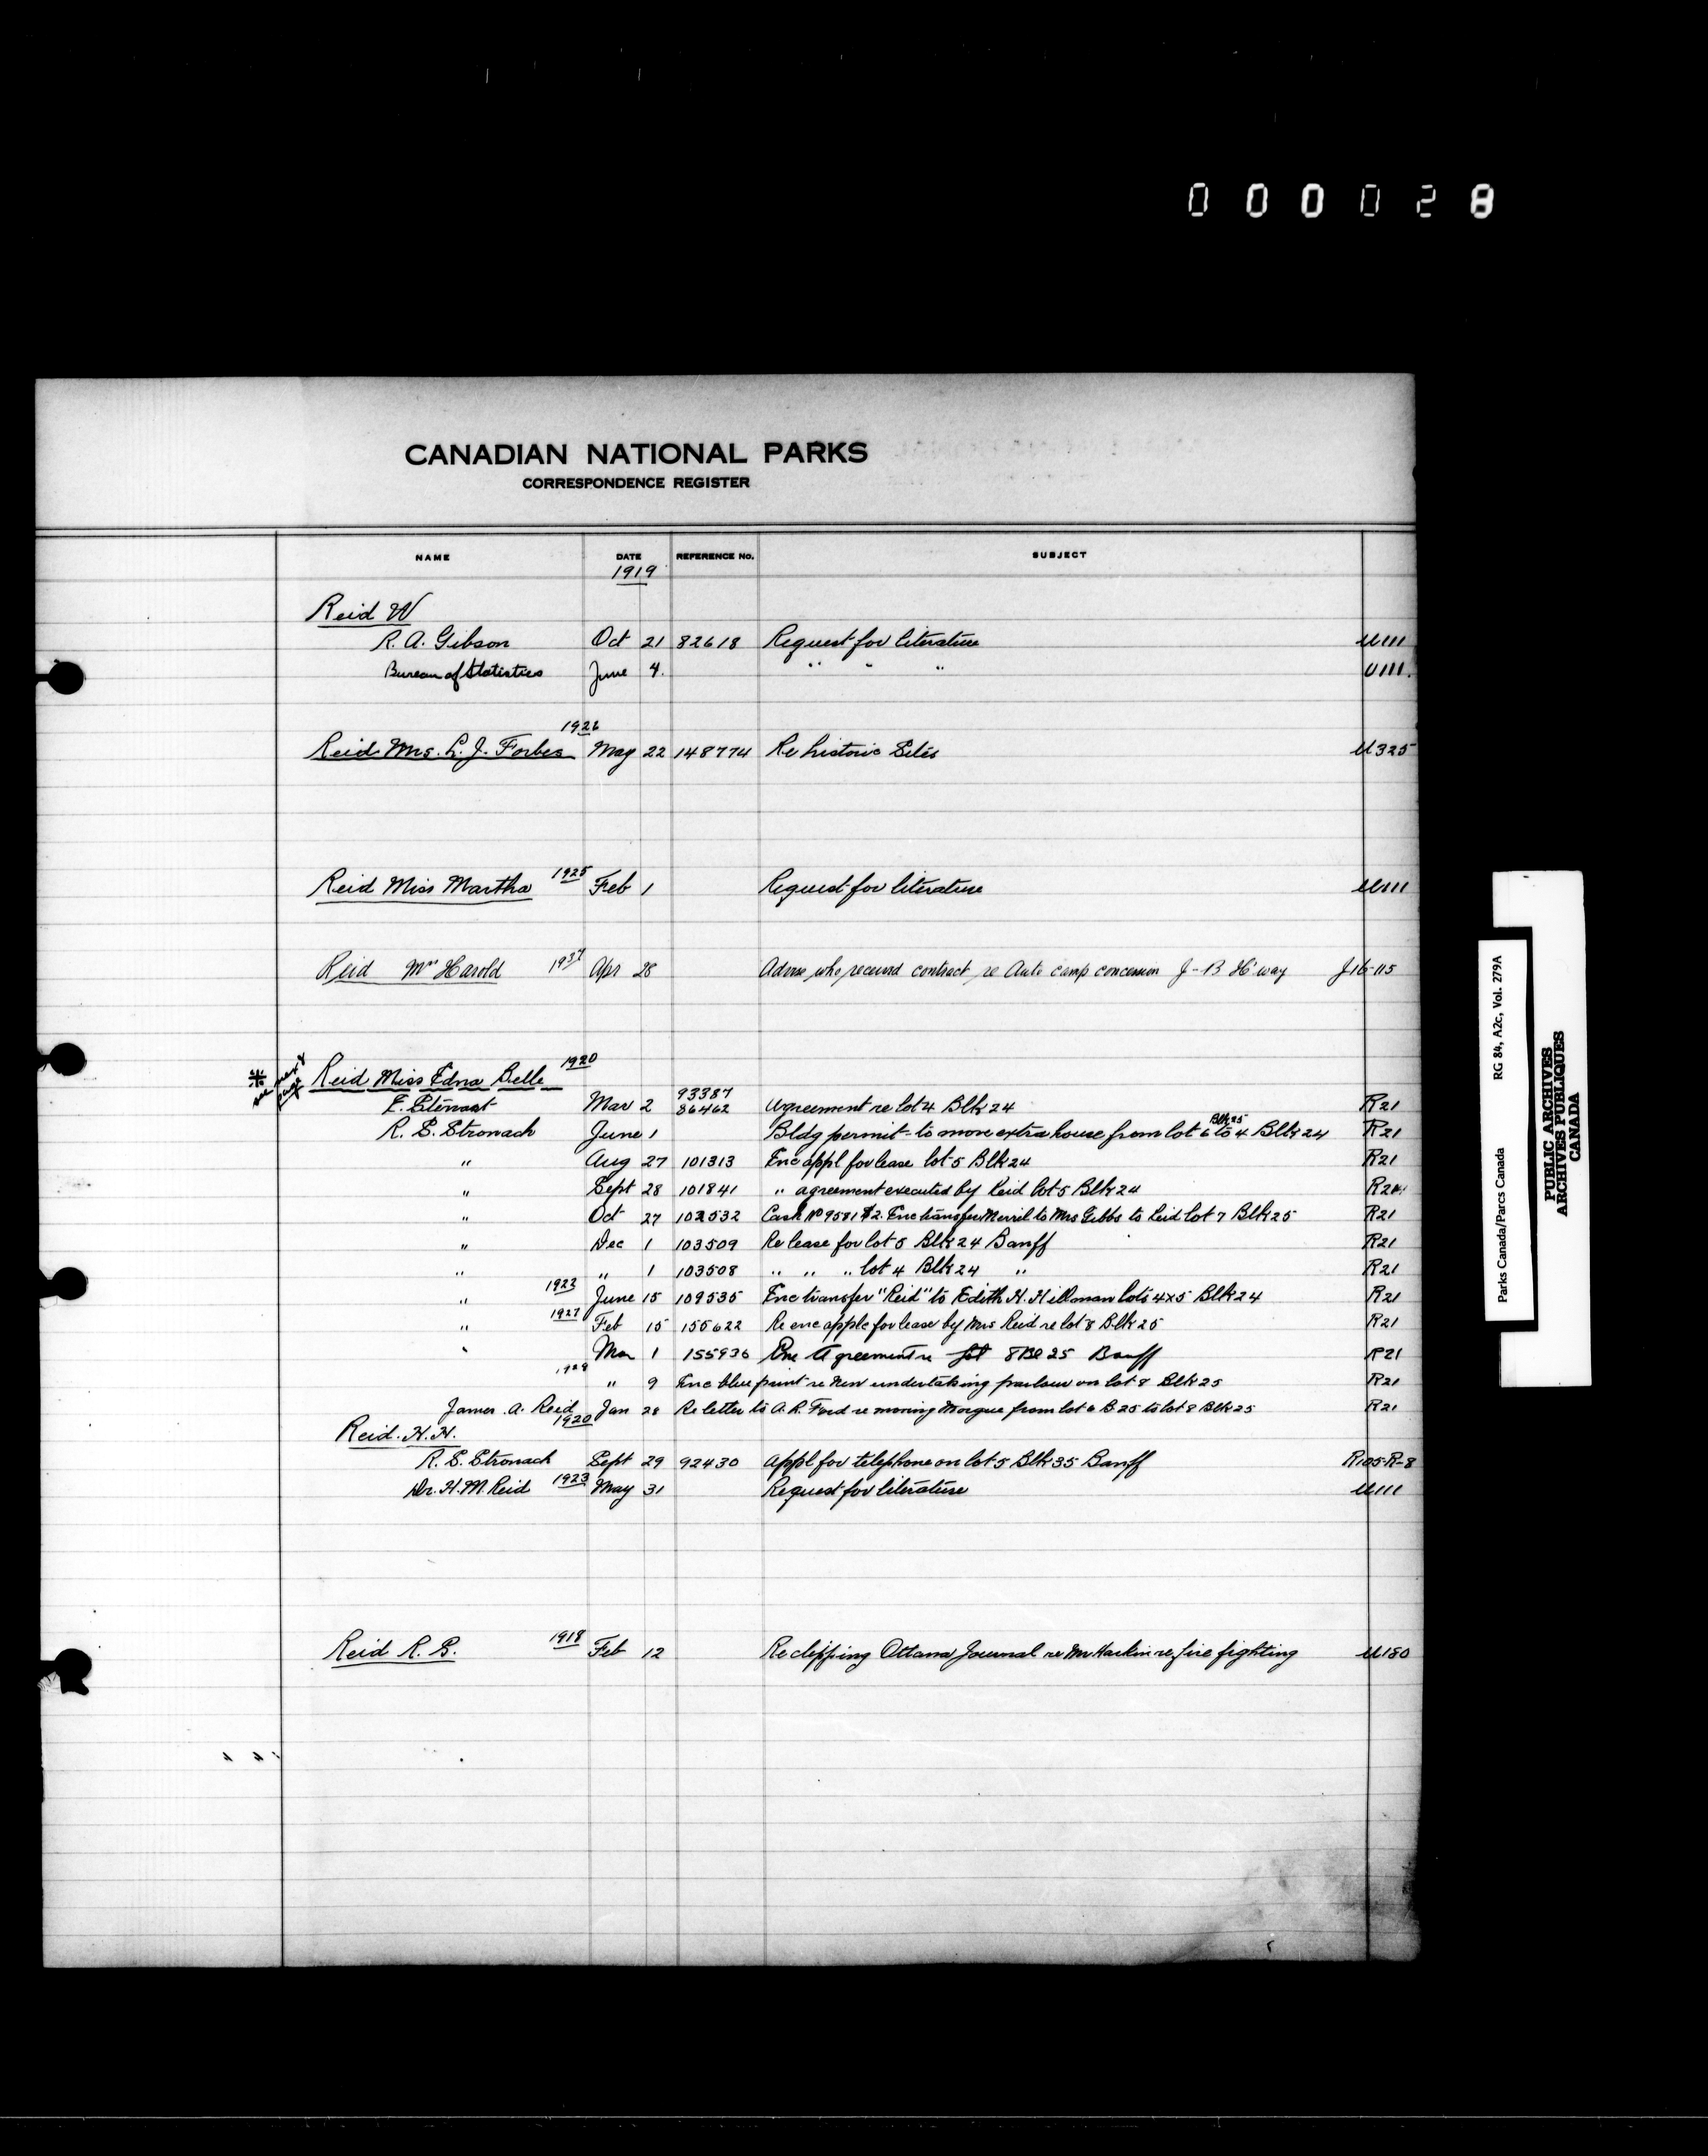 000028
CANADIAN NATIONAL PARKS
CORRESPONDENCE REGISTER
NAME DATE REFERENCE No. SUBJECT
1919
Reid W
R. A. Gibson Oct 21 82618 Request for literature U111
Bureau of Statistics June 4. " " " U111.
1926
Reid Mrs. L. J. Forbes May 22 148774 Re historic Sites U325
Reid Miss Martha 1925 Feb 1 Request for literature U111
Reid Mrs Harold 1937 Apr 28 Advise who received contract re Auto camp concession J-B H'way J16-115
1920
* see next page Reid Miss Edna Belle
93387
E. Stewart Mar 2 86462 Agreement re lot 4 Blk 24 R21
Blk 25
R. S. Stronach June 1 Bldg permit - to move extra house from lot 6 to 4 Blk 24 R21
" Aug 27 101313 Enc appl for lease lot 5 Blk 24 R21
" Sept 28 101841 " agreement executed by Reid lot 5 Blk 24 R21
" Oct 27 102532 Cash No 9581 $2. Enc transfer Merril to Mrs Gibbs to Reid lot 7 Blk 25 R21
" Dec 1 103509 Re lease for lot 5 Blk 24 Banff R21
" " 1 103508 " " " lot 4 Blk 24 " R21
" 1922 June 15 109535 Enc transfer "Reid" to Edith H. Hillman lots 4 x 5 Blk 24 R21
" 1927 Feb 15 155622 Re enc apple for lease by Mrs Reid re lot 8 Blk 25 R21
" Mar 1 155936 Enc Agreement re lot 8 Bl 25 Banff R21
" 9 Enc blue print re new undertaking parlour on lot 8 Blk 25 R21
1928
James. A. Reid Jan 28 Re letter to A. R. Ford re moving Morgue from lot 6 B 25 to lot 8 Blk 25 R21
1920
Reid. H. H.
R. S. Stronach Sept 29 92430 Appl for telephone on lot 5 Blk 35 Banff R105-R-8
Dr. H. M. Reid 1923 May 31 Request for literature U111
Reid R. S. 1918 Feb 12 Re clipping Ottawa Journal re Mr Harkin re fire fighting U180
Parks Canada/Parcs Canada RG 84, A2c, Vol. 279A
PUBLIC ARCHIVES
ARCHIVES PUBLIQUES
CANADA